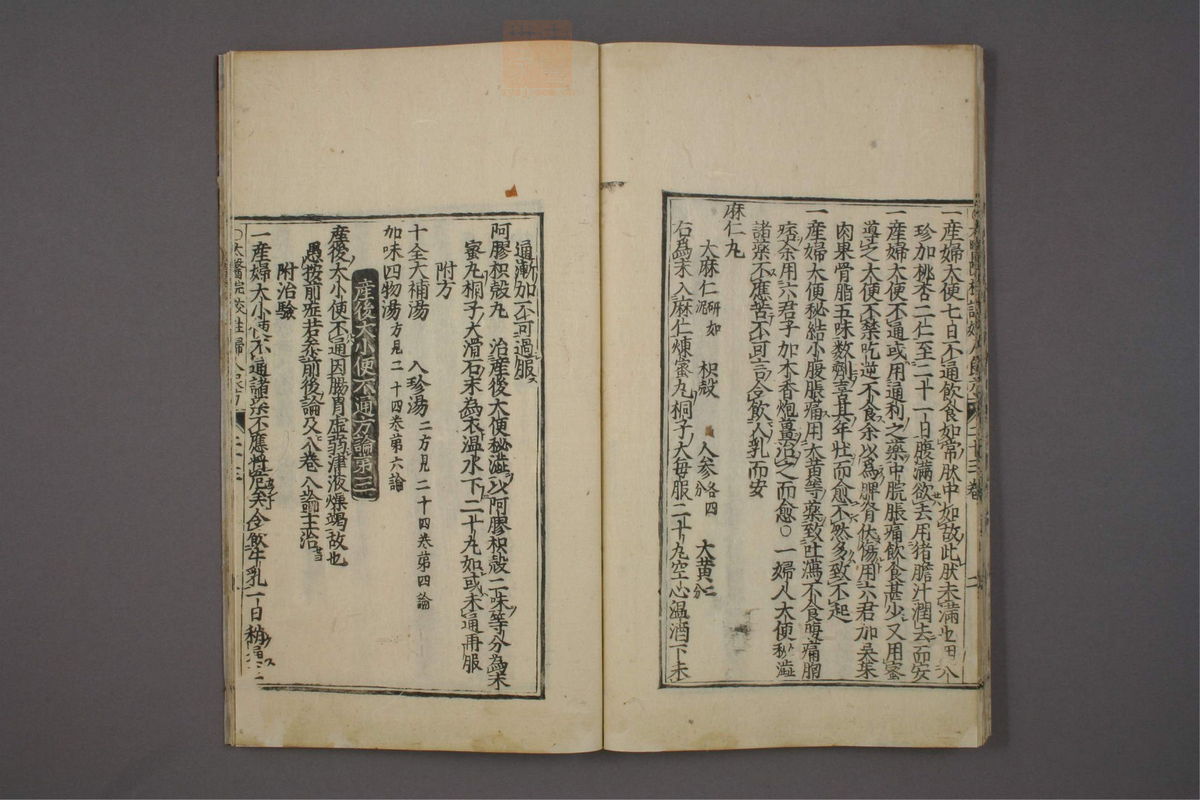 一産婦大便七日不通飲食如常肰中如故此肰未滿也用八
珍加桃杏二仁至二十一日腹滿欲去用猪膽汁潤去而安
一産婦大便不通或用通利之藥中脘脹痛飲食甚少又用蜜
導之大便不禁吃逆不食余以爲脾胃伏傷用六君加吳茱
肉果骨脂五味数劑喜其年壯而愈不然多致不起
一産婦大便秘結小腹脹痛用大黄等藥致吐瀉不食腹痛胸
痞余用六君子加木香炮薑治之而愈○一婦人大便秘澁
諸藥不應苦不可言令飲人乳而安
麻仁丸
大麻仁研如泥 枳殻 人参各四分 大黄二分
右爲末入麻仁煉蜜丸桐子大毎服二十丸空心温酒下未
通漸加不可過服
阿膠枳殻丸 治産後大便秘澁以阿膠枳殻二味等分為末
蜜丸桐子大滑石末為衣温水下二十丸如或未通再服
附方
十全大補湯 八珍湯二方見二十四卷第四論
加味四物湯方見二十四卷第六論
産後大小便不通方論第三
産後大小便不通因腸胃虚弱津液燥竭故也
愚按前症若参前後論及八卷八論主治
附治驗
一産婦大小便不通諸藥不應將危矣令飲牛乳一日稍
二十三卷